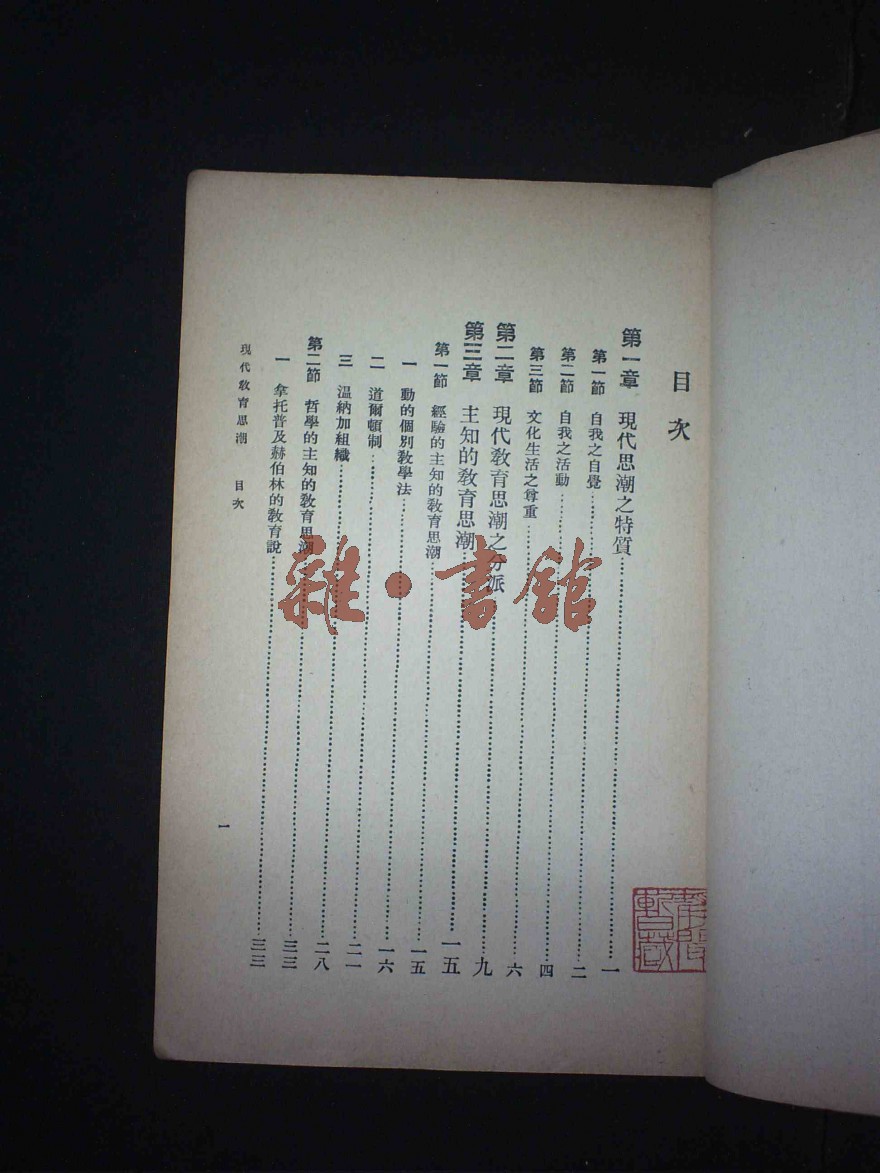 目次
第一章 現代思潮之特質……一
第一節 自我之自覺……二
第二節 自我之活動……四
第三節 文化生活之尊重……六
第二章 現代敎育思潮之分派……九
第三章 主知的敎育思潮……一五
第一節 經驗的主知的敎育思潮……一五
一 動的個別敎學法……一六
二 道爾頓制……二一
三 溫納加組織……二八
第二節 哲學的主知的敎育思潮……三三
一 拿托普及赫伯林的敎育說……三三
現代敎育思潮 目次
一
雜·書館